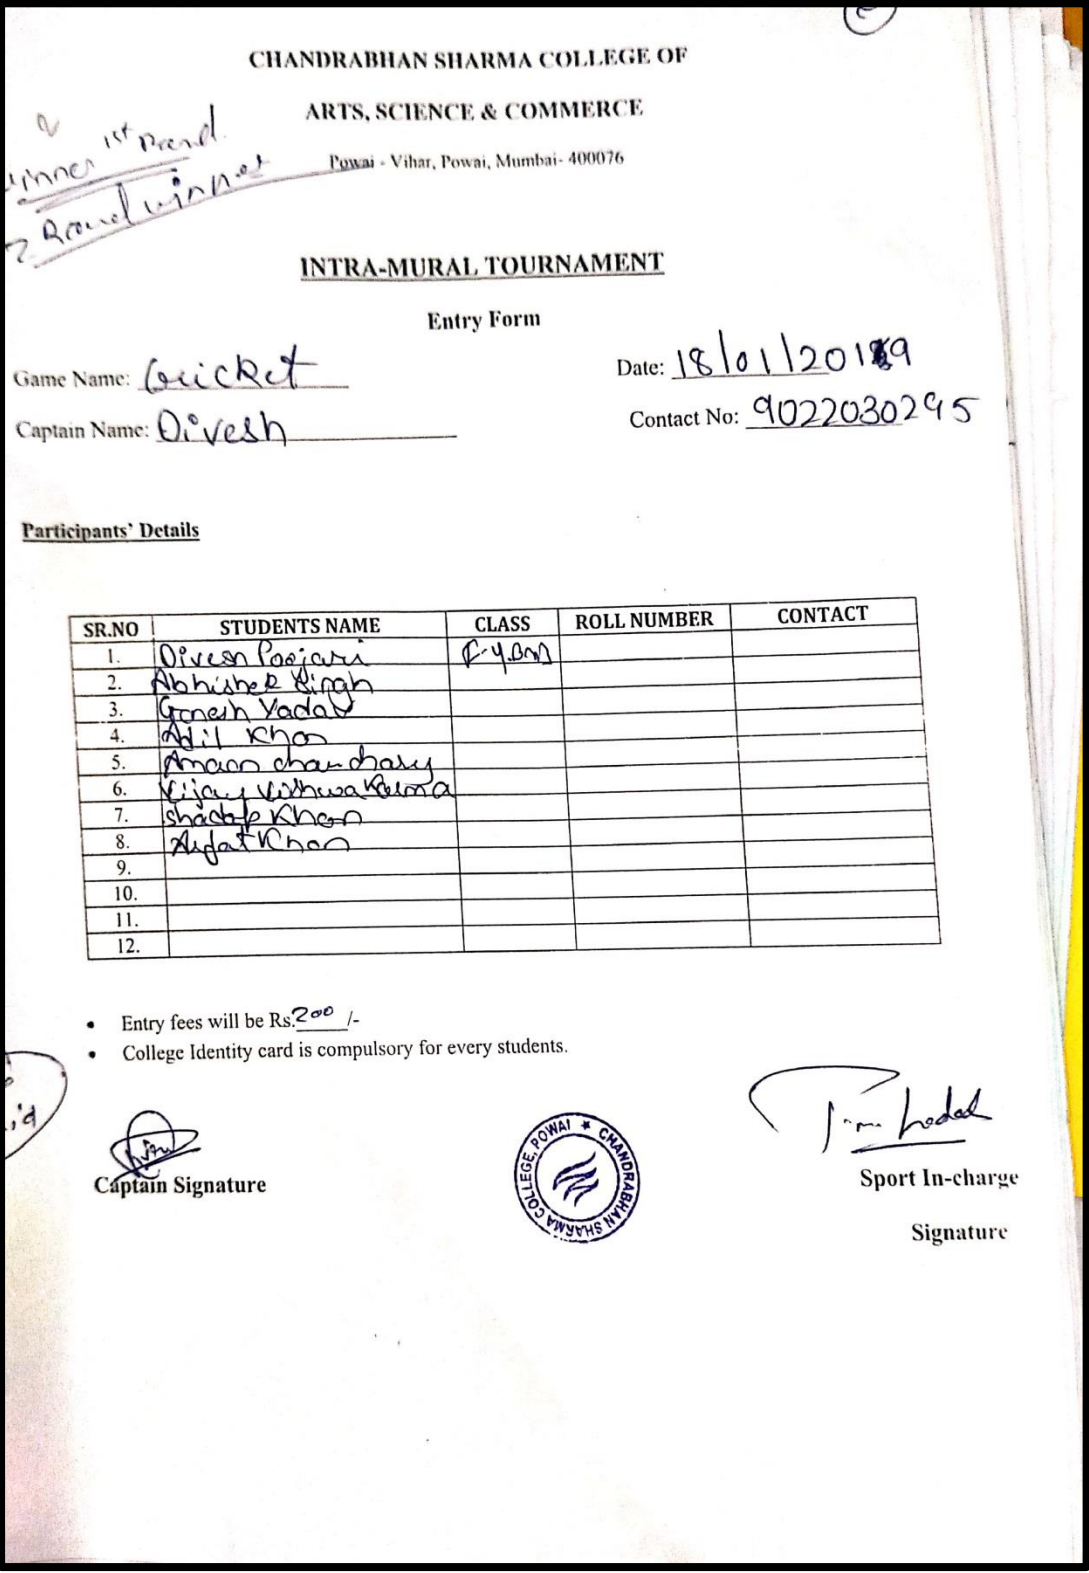 CHANDRABHAN SHARMA COLLEGE OF
ARTS, SCIENCE & COMMERCE
Powai - Vihar, Powai, Mumbai- 400076
1st
Round winner
INTRA-MURAL TOURNAMENT
Entry Form
Game Name: Cricket
Date: 18/01/2019
Captain Name: Divesh
Contact No: 9022030295
Participants' Details
SR.NO STUDENTS NAME CLASS ROLL NUMBER CONTACT
1. Divesh Poojari F.Y.
2. Abhishek Singh
3. Ganesh Yadav
4. Adil Khan
5. Amaan chaudhary
6. Vijay Vishwakarma
7. Shadab Khan
8. Khan
9.
10.
11.
12.
• Entry fees will be Rs.200 /-
• College Identity card is compulsory for every students.
Captain Signature
CHANDRABHAN SHARMA COLLEGE, POWAI ★
Sport In-charge
Signature